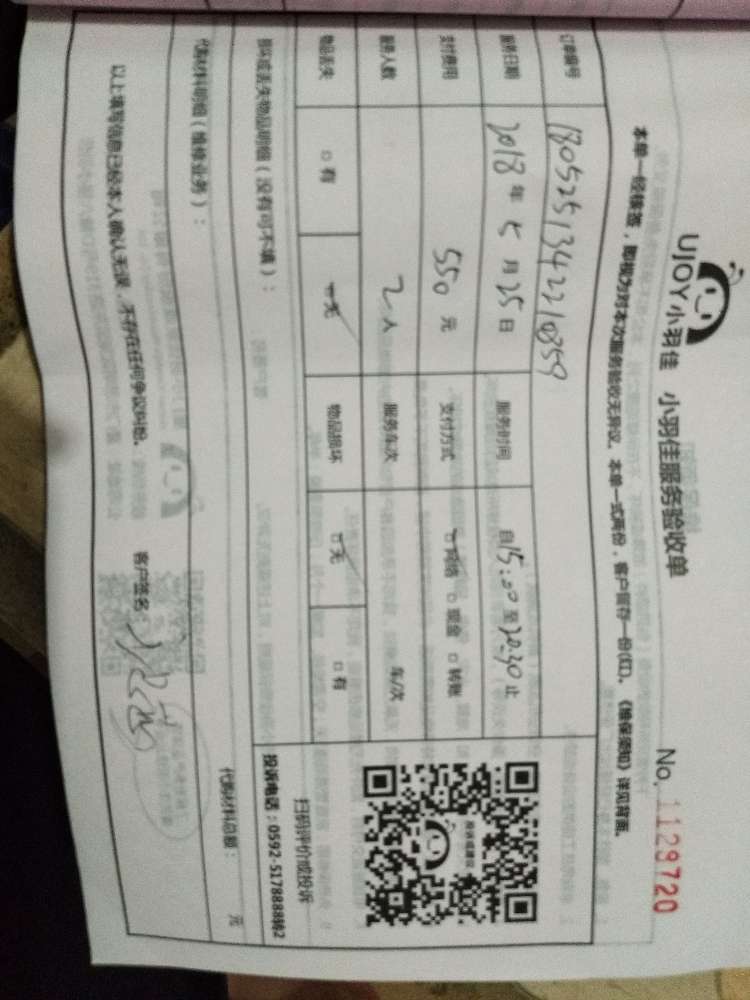 UJOY小羽佳 小羽佳服务验收单
No. 1129720
本单一经核签,即视为对本次服务验收无异议。本单一式两份,客户留存一份(红)。《维保须知》详见背面。
订单编号 1805251342210359
服务日期 2018年5月25日 服务时间 自15:00至20:30止
支付费用 550元 支付方式 网络 现金 转账
服务人数 2人 服务车次 车/次
物品丢失 有 无 物品损坏 无 有
损坏或丢失物品明细(没有可不填):
投诉或建议
扫码评价或投诉
投诉电话:0592-5178888转2
代购材料明细(维修业务):
代购材料总额: 元
以上填写信息已经本人确认无误,不存在任何争议纠纷。 客户签名: